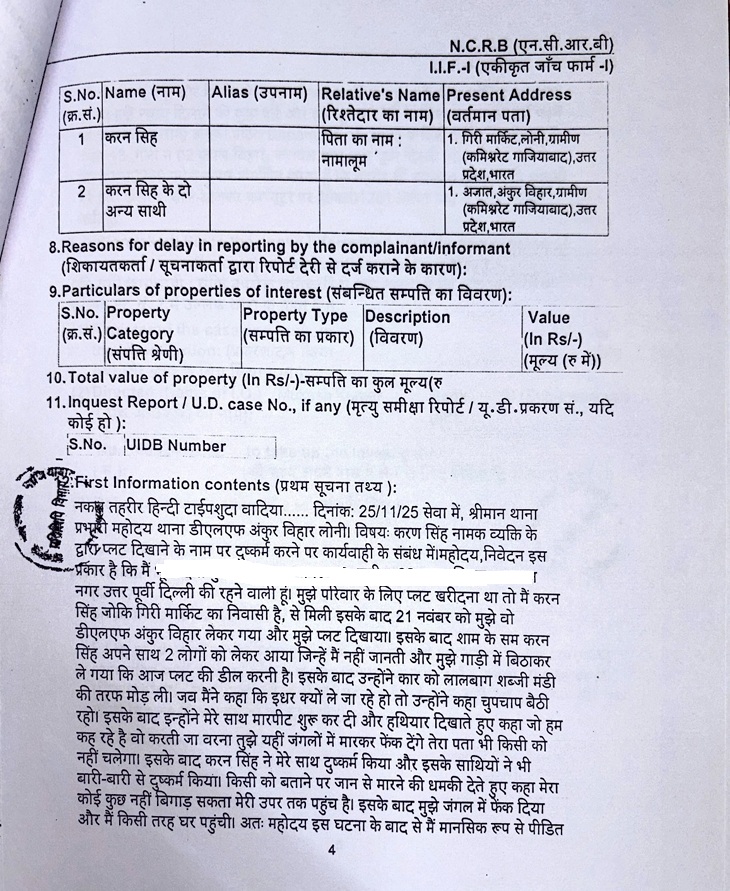 N.C.R.B (एन.सी.आर.बी)
I.I.F.-I (एकीकृत जाँच फार्म -I)
S.No. (क्र.सं.) Name (नाम) Alias (उपनाम) Relative's Name (रिश्तेदार का नाम) Present Address (वर्तमान पता)
1 करन सिह पिता का नाम : नामालूम 1. गिरी मार्किट,लोनी,ग्रामीण (कमिश्नरेट गाजियाबाद),उत्तर प्रदेश,भारत
2 करन सिह के दो अन्य साथी 1. अजात,अंकुर विहार,ग्रामीण (कमिश्नरेट गाजियाबाद),उत्तर प्रदेश,भारत
8.Reasons for delay in reporting by the complainant/informant
(शिकायतकर्ता / सूचनाकर्ता द्वारा रिपोर्ट देरी से दर्ज कराने के कारण):
9.Particulars of properties of interest (संबन्धित सम्पत्ति का विवरण):
S.No. (क्र.सं.) Property Category (संपत्ति श्रेणी) Property Type (सम्पत्ति का प्रकार) Description (विवरण) Value (In Rs/-) (मूल्य (रु में))
10.Total value of property (In Rs/-)-सम्पत्ति का कुल मूल्य(रु
11.Inquest Report / U.D. case No., if any (मृत्यु समीक्षा रिपोर्ट / यू.डी.प्रकरण सं., यदि
कोई हो ):
S.No. UIDB Number
First Information contents (प्रथम सूचना तथ्य ):
नकल तहरीर हिन्दी टाईपशुदा वादिया...... दिनांक: 25/11/25 सेवा में, श्रीमान थाना
प्रभारी महोदय थाना डीएलएफ अंकुर विहार लोनी। विषयः करण सिंह नामक व्यक्ति के
द्वारा प्लट दिखाने के नाम पर दुष्कर्म करने पर कार्यवाही के संबंध में।महोदय,निवेदन इस
प्रकार है कि मैं
नगर उत्तर पूर्वी दिल्ली की रहने वाली हूं। मुझे परिवार के लिए प्लट खरीदना था तो मैं करन
सिंह जोकि गिरी मार्किट का निवासी है, से मिली इसके बाद 21 नवंबर को मुझे वो
डीएलएफ अंकुर विहार लेकर गया और मुझे प्लट दिखाया। इसके बाद शाम के सम करन
सिंह अपने साथ 2 लोगों को लेकर आया जिन्हें मैं नहीं जानती और मुझे गाड़ी में बिठाकर
ले गया कि आज प्लट की डील करनी है। इसके बाद उन्होंने कार को लालबाग शब्जी मंडी
की तरफ मोड़ ली। जब मैंने कहा कि इधर क्यों ले जा रहे हो तो उन्होंने कहा चुपचाप बैठी
रहो। इसके बाद इन्होंने मेरे साथ मारपीट शुरू कर दी और हथियार दिखाते हुए कहा जो हम
कह रहे है वो करती जा वरना तुझे यहीं जंगलों में मारकर फेंक देंगे तेरा पता भी किसी को
नहीं चलेगा। इसके बाद करन सिंह ने मेरे साथ दुष्कर्म किया और इसके साथियों ने भी
बारी-बारी से दुष्कर्म किया। किसी को बताने पर जान से मारने की धमकी देते हुए कहा मेरा
कोई कुछ नहीं बिगाड़ सकता मेरी उपर तक पहुंच है। इसके बाद मुझे जंगल में फेंक दिया
और मैं किसी तरह घर पहुंची। अतः महोदय इस घटना के बाद से मैं मानसिक रूप से पीडित
4